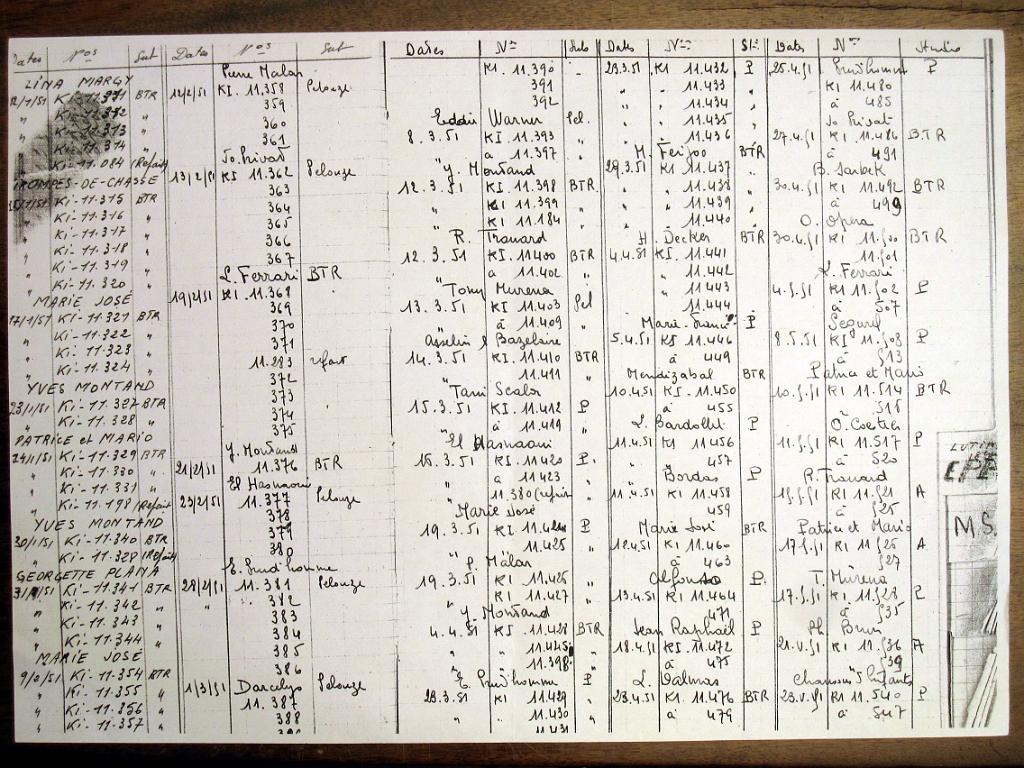 Dates Nos Sut
LINA MARGY
12/1/51 Ki-11.371 BTR
" Ki-11.372 "
" Ki-11.313 "
" Ki-11.314 "
" Ki-11.084 (Refait)
TROMPES-DE-CHASSE
Ki-11.315 BTR
" Ki-11.316 "
" Ki-11.317 "
" Ki-11.318 "
" Ki-11.319 "
" Ki-11.320 "
MARIE JOSÉ
17/1/51 Ki-11.321 BTR
" Ki-11.322 "
" Ki-11.323 "
" Ki-11.324 "
YVES MONTAND
23/1/51 Ki-11.327 BTR
" Ki-11.328 "
PATRICE et MARIO
24/1/51 Ki-11.329 BTR
" Ki-11.330 "
" Ki-11.331 "
" Ki-11.198 (Refait)
YVES MONTAND
30/1/51 Ki-11.340 BTR
" Ki-11.328 (Refait)
GEORGETTE PLANA
Ki-11.341 BTR
" Ki-11.342 "
" Ki-11.343 "
" Ki-11.344 "
MARIE JOSÉ
Ki-11.354 BTR
" Ki-11.355 "
" Ki-11.356 "
" Ki-11.357 "
Dates Nos Sut
Pierre Malar
12/2/51 KI. 11.358 Pelouze
359
360
361
Jo. Privat
13/2/51 KI 11.362 Pelouze
363
364
365
366
367
L. Ferrari BTR
19/2/51 KI. 11.368
369
370
371
11.283 refait
372
373
374
375
Y. Montand
21/2/51 11.376 BTR
El Hasnaoui
23/2/51 11.377 Pelouze
378
379
380
E. Prud'homme
28/2/51 11.381 Pelouze
" 382
383
384
385
386
1/3/51 Darcelys Pelouze
11.387
388
Dates Nos Stds
KI. 11.390
391
392
Eddie Warner Pel.
8.3.51 KI. 11.393
a 11.397
Y. Montand
12.3.51 KI. 11.398 BTR.
" KI. 11.399
" KI. 11.184
R. Trouard
12.3.51 KI. 11400 BTR
" à 11.402 "
Tony Murena
13.3.51 KI. 11.403 Pel
" à 11.409 "
Asselin & Bazelaire
14.3.51 KI. 11.410 BTR
" 11.411 "
Tani Scala
15.3.51 KI. 11.412 P
" à 11.419 "
El Hasnaoui
15.3.51 KI. 11.420 P.
" à 11.423
11.380 (refait)
Marie José
19.3.51 KI. 11.424 P
" 11.425 "
P. Malar
19.3.51 KI 11.426 "
" KI 11.427 "
Y. Montand
4.4.51 KI. 11.428 BTR
" 11.445 "
11.398
E. Prud'homme P
23.3.51 KI 11.429 "
" " 11.430 "
11.431
Dates Nos St:
23.3.51 KI 11.432 P
" " 11.433 "
" " 11.434 "
" " 11.435 "
" " 11.436 "
M. Feijoo BTR
29.3.51 KI 11.437 "
" " 11.438 "
" " 11.439 "
" " 11.440 "
H. Decker BTR
4.4.51 KI. 11.441
" " 11.442
" " 11.443
" " 11.444
P
5.4.51 KI 11.446
à 449
Mendizabal BTR
10.4.51 KI. 11.450
à 455
L. Bardollet P
11.4.51 KI 11.456
" 457
Bordas P
11.4.51 KI 11.458
459
Marie José BTR
12.4.51 KI 11.460
à 463
Alfonso P.
13.4.51 KI 11.464
à 471
Jean Raphaël P
18.4.51 KI. 11.472
à 475
L. Dalmas
23.4.51 KI. 11.476 BTR
à 479
Dates Nos Studio
25.4.51 Prud'homme P
KI 11.480
à 485
Jo Privat
27.4.51 KI 11.486 BTR
à 491
B. Sarbek
30.4.51 KI 11.492 BTR
à 499
O. Opera
30.4.51 KI 11.500 BTR
11.501
L. Ferrari
4.5.51 KI 11.502 P
à 507
Segurel
8.5.51 KI 11.508 P
à 513
Patrice et Mario
10.5.51 KI 11.514 BTR
à 516
11.5.51 KI 11.517 P
à 520
R. Trouard
KI 11.521 A
à 525
Patrice et Mario
17.5.51 KI 11.526 A
527
T. Murena
17.5.51 KI 11.528 P
à 535
Ph. Brun
21.V.51 KI 11.536 A
539
Chansons d'Enfants
23.V.51 KI 11.540 P
à 547
M.S.